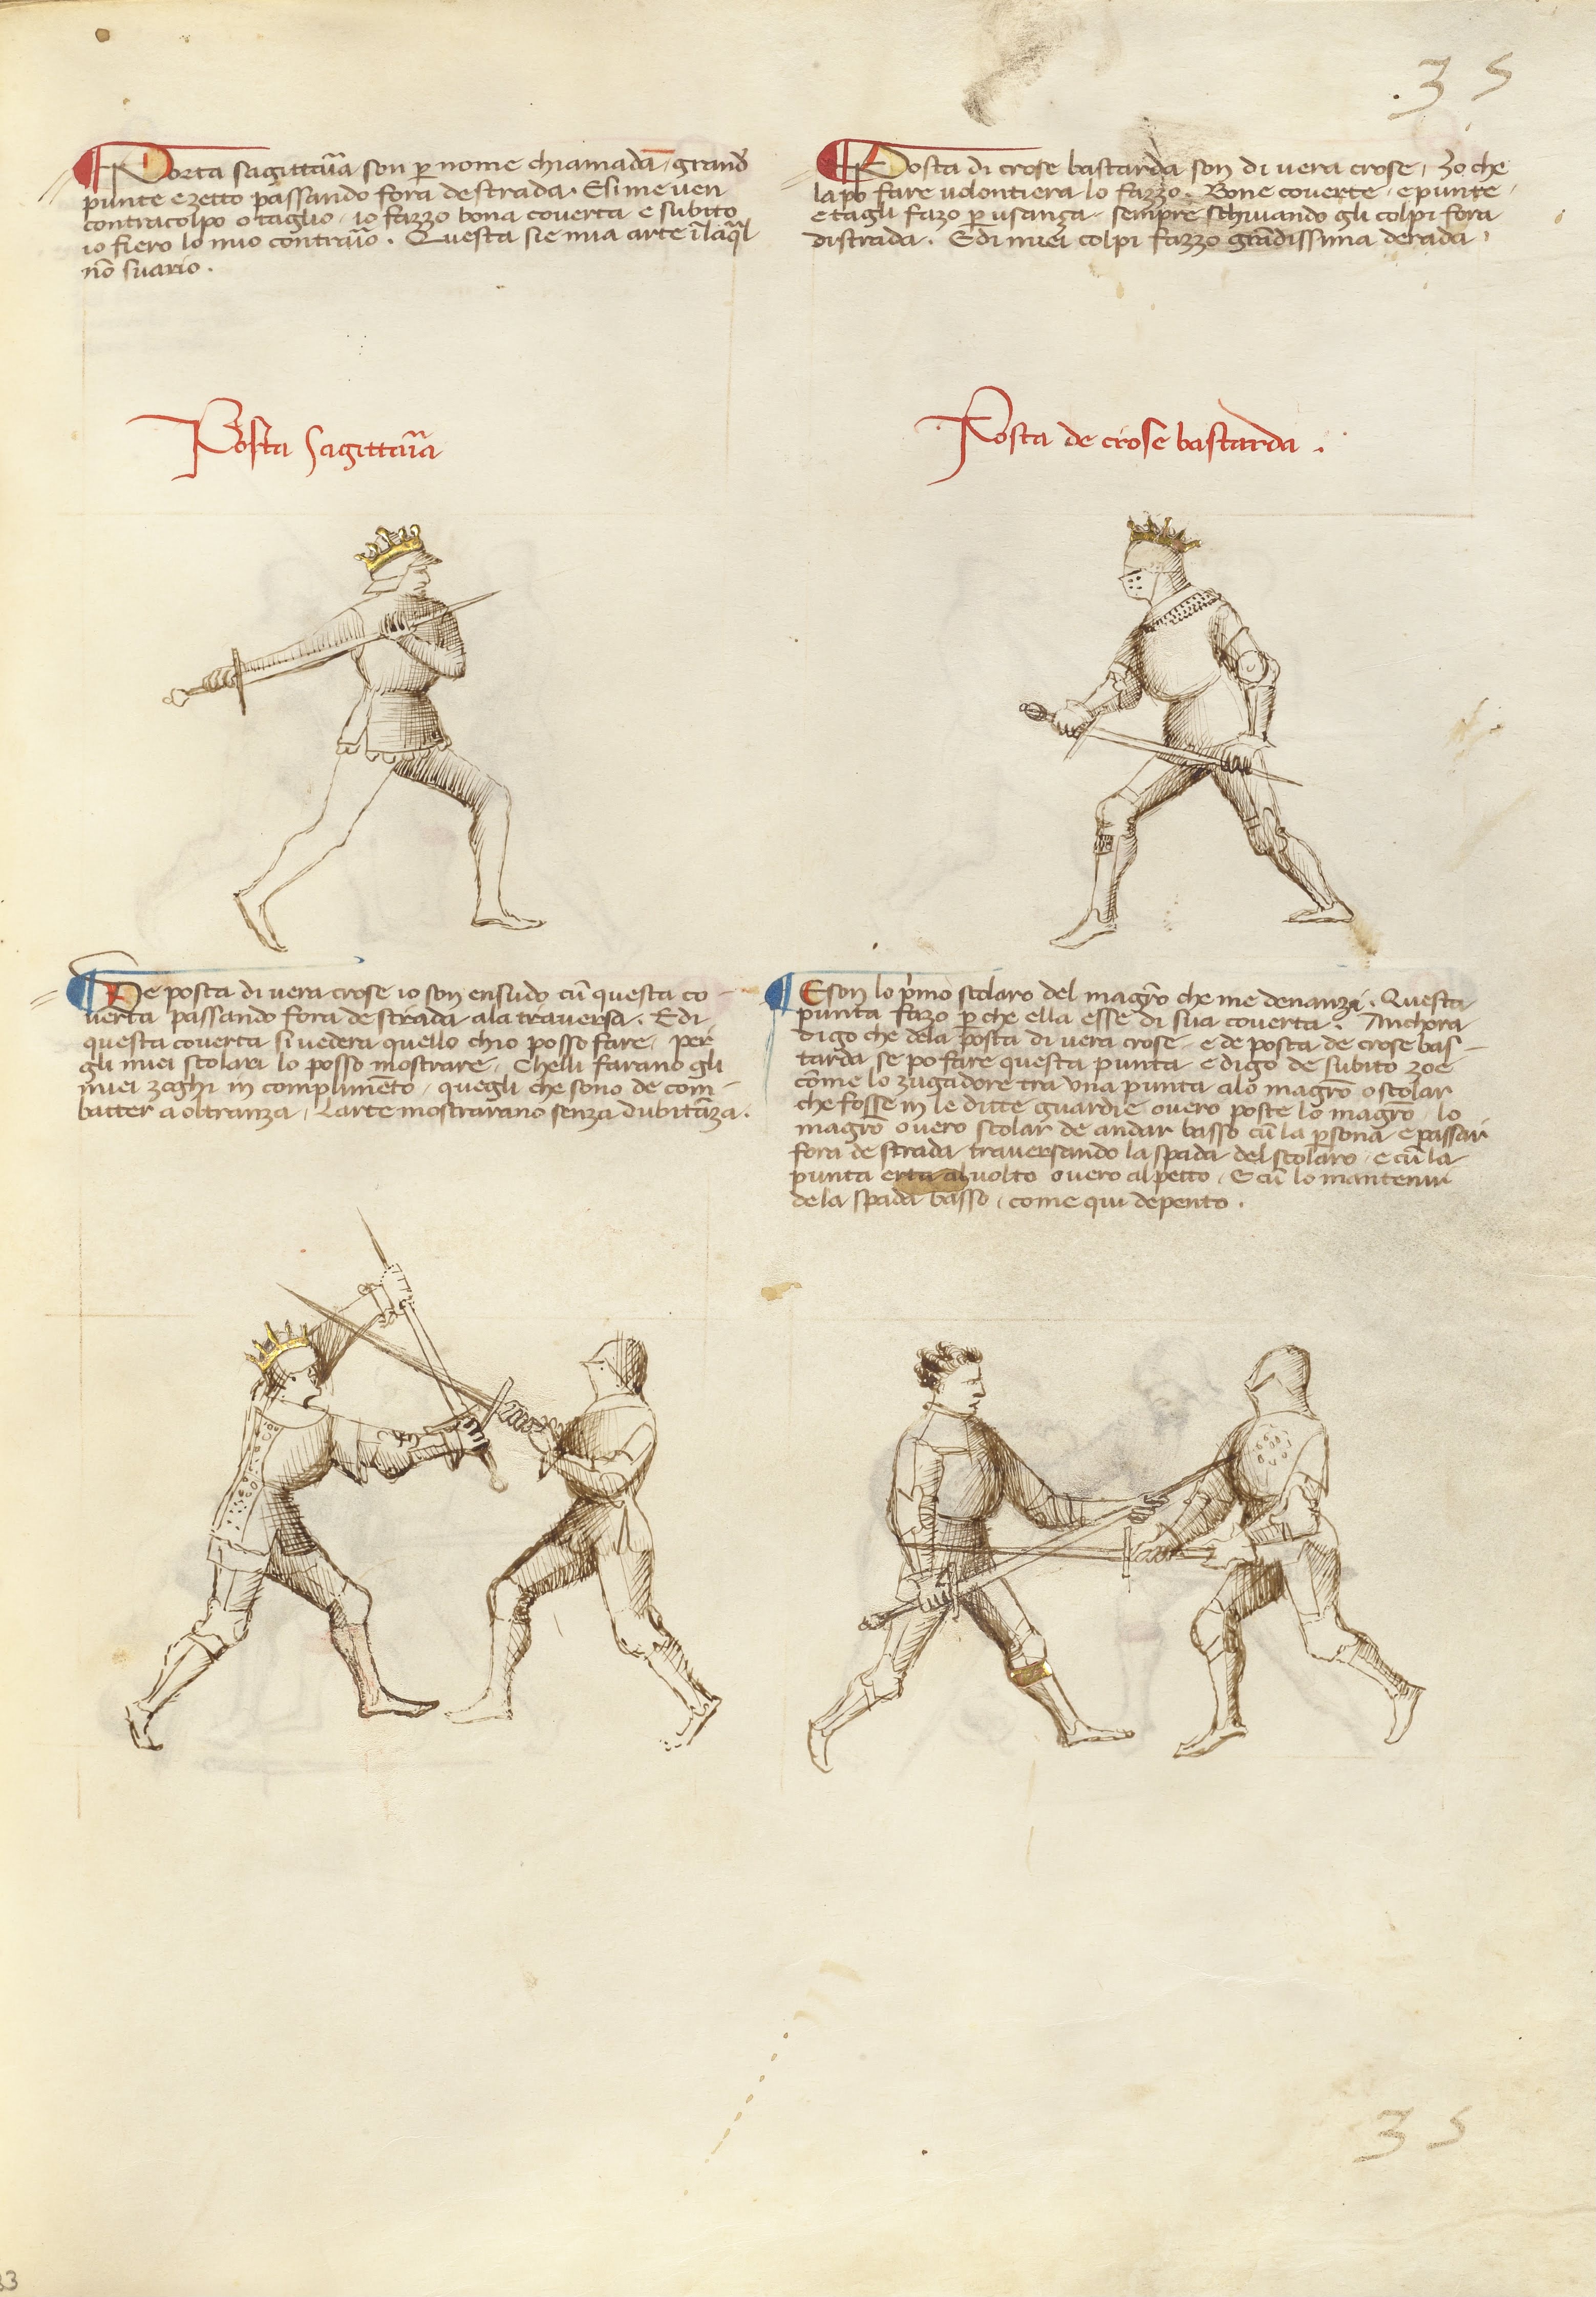 35
Posta sagittaria son per nome chiamada, grande
punte e zetto passando fora de strada. E si me ven
contra colpo o taglio, io fazzo bona coverta e subito
io fiero lo mio contrario. Questa sie mia arte in laquel
nō svario.
Posta di crose bastarda son di vera crose, zo che
la po fare volontiera lo fazzo. Bone coverte, e punte,
e tagli fazo per usança, sempre schivando gli colpi fora
di strada. E di miei colpi fazzo grādissima derada,
Posta Sagittaria
Posta de crose bastarda.
De posta di vera crose io son ensudo cū questa co-
verta passando fora de strada ala traversa. E di
questa coverta si vedera quello chio posso fare, per
gli miei scolari lo posso mostrare, Chelli farano gli
miei zoghi in complimēto, quegli che sono de com-
batter a oltranza, L'arte mostrarano senza dubitāza.
E son lo primo scolaro del magro che me denanzi. Questa
punta fazo per che ella esse di sua coverta. Anchora
digo che dela posta di vera crose, e de posta de crose bas-
tarda, se po fare questa punta, e digo de subito zoe
come lo zugadore tra una punta alo magro o scolar
che fosse in le ditte guardie overo poste lo magro, lo
magro overo scolar de andar basso cū la persona e passar
fora de strada traversando la spada del scolaro, e cū la
punta erta al volto overo al petto, E cū lo mantenir
dela spada basso, come qui depento.
35
33